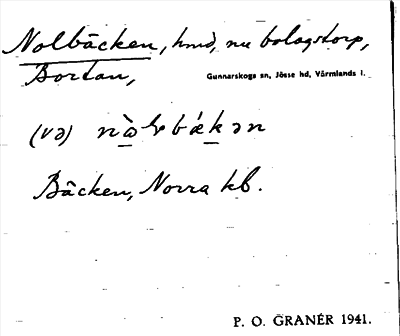 Nolbäcken, hmd, nu bolagstorp,
Bortan,
Gunnarskogs sn, Jösse hd, Värmlands l.
(və)
Bäcken, Norra kb.
P. O. GRANÉR 1941.